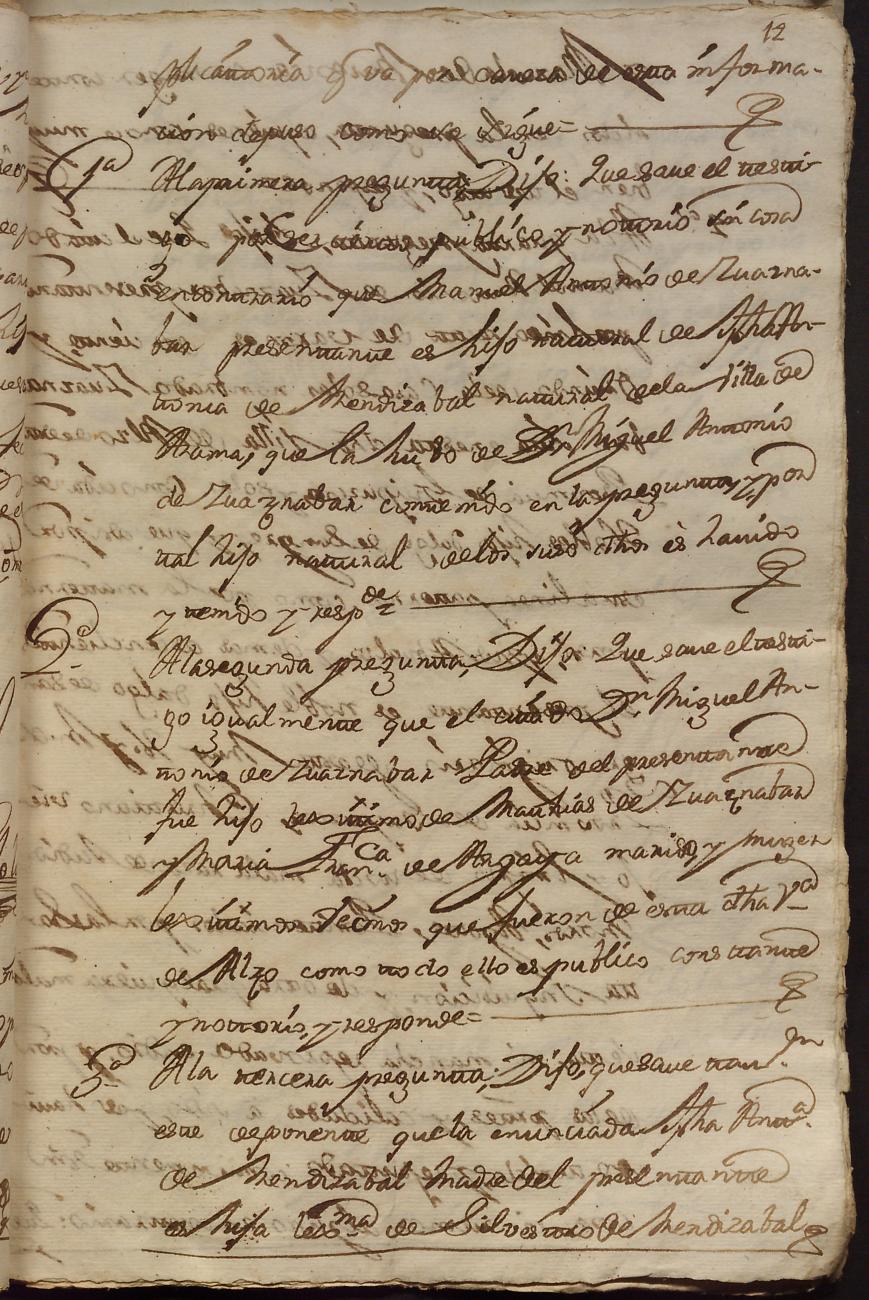 12
que va por cavera de esta informa-
cion depuso como se sigue=
1ª Ala primera pregunta; Dijo: Que save el testi-
go por ser publico, y nottorio sin cosa
en contrario que Manuel Antonio de Zuazna-
bar presentante es hijo natural de Jpha An-
tonia de Mendizabal natural dela Villa de
Ama, que la hubo de Dn Miguel Antonio
de Zuaznabar contenido en la pregunta, y por
tal hijo natural delos suso dhos es havido
y tenido y respde=
2ª Ala segunda pregunta; Dijo: Que save el testi-
go igualmente que el citado Dn Miguel An-
tonio de Zuaznabar Padre del presentante
fue hijo lexitimo de Mathias de Zuaznabar
y Maria Franca de Argaya marido, y muger
lexitimos Vecinos que fueron de esta dha Va
de Alzo como todo ello es publico constante
y nottorio, y responde=
3ª Ala tercera pregunta; Dijo, que save tamn
este deponente que la enunciada Jpha Anta
de Mendizabal Madre del presentante
es hija lexma de Silvestre de Mendizabal